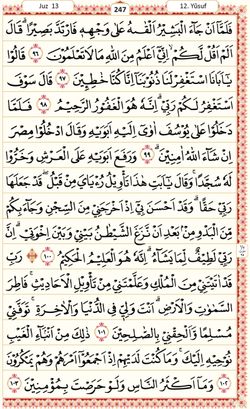 Juz 13
247
12. Yûsuf
فَلَمَّٓا اَنْ جَٓاءَ الْبَش۪يرُ اَلْقٰيهُ عَلٰى وَجْهِه۪ فَارْتَدَّ بَص۪يرًاۚ قَالَ
اَلَمْ اَقُلْ لَكُمْ اِنّ۪ٓي اَعْلَمُ مِنَ اللّٰهِ مَا لَا تَعْلَمُونَ ﴿٩٦﴾ قَالُوا
يَٓا اَبَانَا اسْتَغْفِرْ لَنَا ذُنُوبَنَٓا اِنَّا كُنَّا خَاطِـ۪ٔينَ ﴿٩٧﴾ قَالَ سَوْفَ
اَسْتَغْفِرُ لَكُمْ رَبّ۪يۜ اِنَّهُ هُوَ الْغَفُورُ الرَّح۪يمُ ﴿٩٨﴾ فَلَمَّا
دَخَلُوا عَلٰى يُوسُفَ اٰوٰٓى اِلَيْهِ اَبَوَيْهِ وَقَالَ ادْخُلُوا مِصْرَ
اِنْ شَٓاءَ اللّٰهُ اٰمِن۪ينَۜ ﴿٩٩﴾ وَرَفَعَ اَبَوَيْهِ عَلَى الْعَرْشِ وَخَرُّوا
لَهُ سُجَّدًاۚ وَقَالَ يَٓا اَبَتِ هٰذَا تَأْو۪يلُ رُءْيَايَ مِنْ قَبْلُۘ قَدْ جَعَلَهَا
رَبّ۪ي حَقًّاۜ وَقَدْ اَحْسَنَ ب۪ٓي اِذْ اَخْرَجَن۪ي مِنَ السِّجْنِ وَجَٓاءَ بِكُمْ
مِنَ الْبَدْوِ مِنْ بَعْدِ اَنْ نَزَغَ الشَّيْطَانُ بَيْن۪ي وَبَيْنَ اِخْوَت۪يۜ اِنَّ
رَبّ۪ي لَط۪يفٌ لِمَا يَشَٓاءُۜ اِنَّهُ هُوَ الْعَل۪يمُ الْحَك۪يمُ ﴿١٠٠﴾ رَبِّ
قَدْ اٰتَيْتَن۪ي مِنَ الْمُلْكِ وَعَلَّمْتَن۪ي مِنْ تَأْو۪يلِ الْاَحَاد۪يثِۚ فَاطِرَ
السَّمٰوَاتِ وَالْاَرْضِ اَنْتَ وَلِيّ۪ فِي الدُّنْيَا وَالْاٰخِرَةِۚ تَوَفَّن۪ي
مُسْلِمًا وَاَلْحِقْن۪ي بِالصَّالِح۪ينَ ﴿١٠١﴾ ذٰلِكَ مِنْ اَنْبَٓاءِ الْغَيْبِ
نُوح۪يهِ اِلَيْكَۚ وَمَا كُنْتَ لَدَيْهِمْ اِذْ اَجْمَعُٓوا اَمْرَهُمْ وَهُمْ يَمْكُرُونَ
﴿١٠٢﴾ وَمَٓا اَكْثَرُ النَّاسِ وَلَوْ حَرَصْتَ بِمُؤْمِن۪ينَ ﴿١٠٣﴾